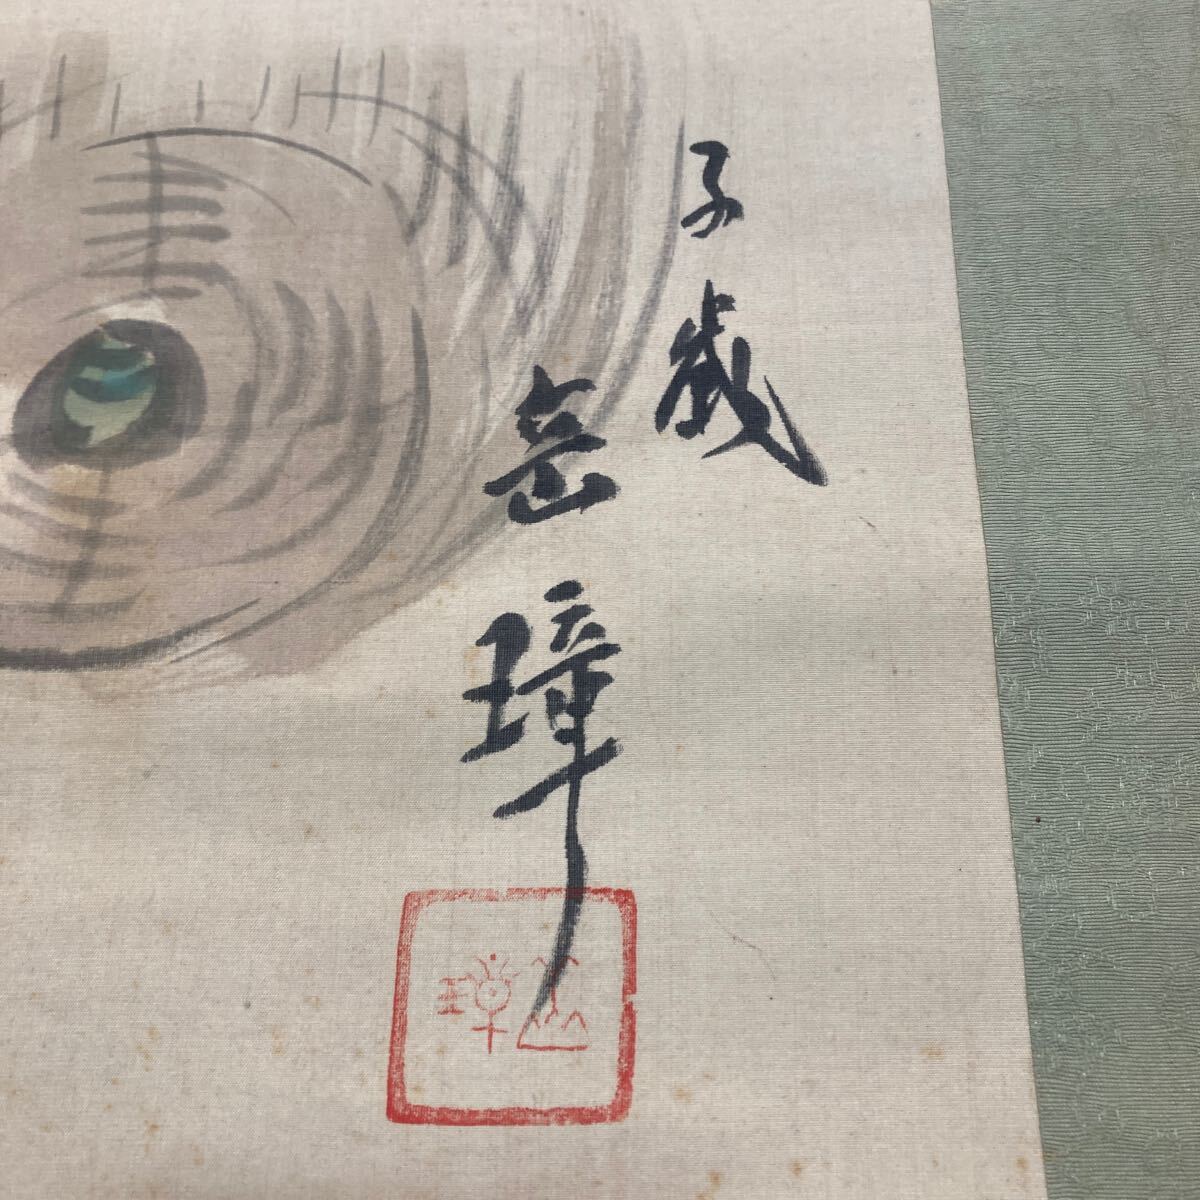 子歳
岳璋
岳璋